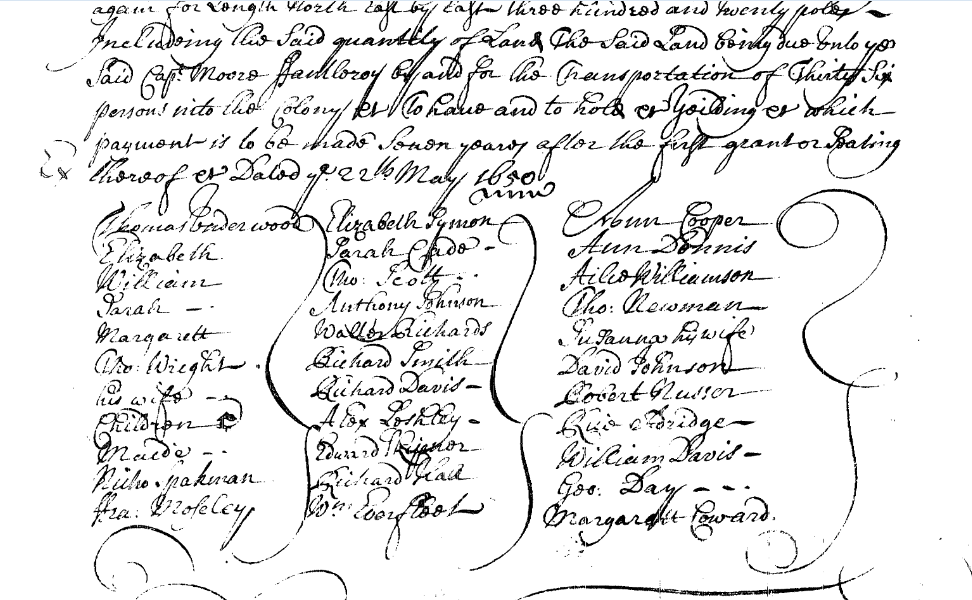 again for Length North East by East three hundred and twenty poles
Includeing the Said quantity of Land The Said Land being due unto ye
Said Capt Moore ffantleroy by and for the Transportation of Thirty Six
persons into the Colony &c To have and to hold &c Yeilding &c which
payment is to be made Seven years after the first grant or Seating
thereof &c Dated ye 22th May 1650
Thomas Underwood
Elizabeth
William
Sarah
Margarett
Tho: Wright
his wife
Children
Maide
Nicho: Spakman
ffra: Moseley
Elizabeth Symon
Sarah
Tho: Scott
Anthony Johnson
Walter Richards
Richard Smith
Richard Davis
Alex Leshley
Edward Skinner
Richard Hall
Wm: Everfleet
Cooper
Ann Dennis
Williamson
Tho: Newman
Susanna his wife
David Johnson
Robert Nusser
William Davis
Geo: Day
Margarett Coward.